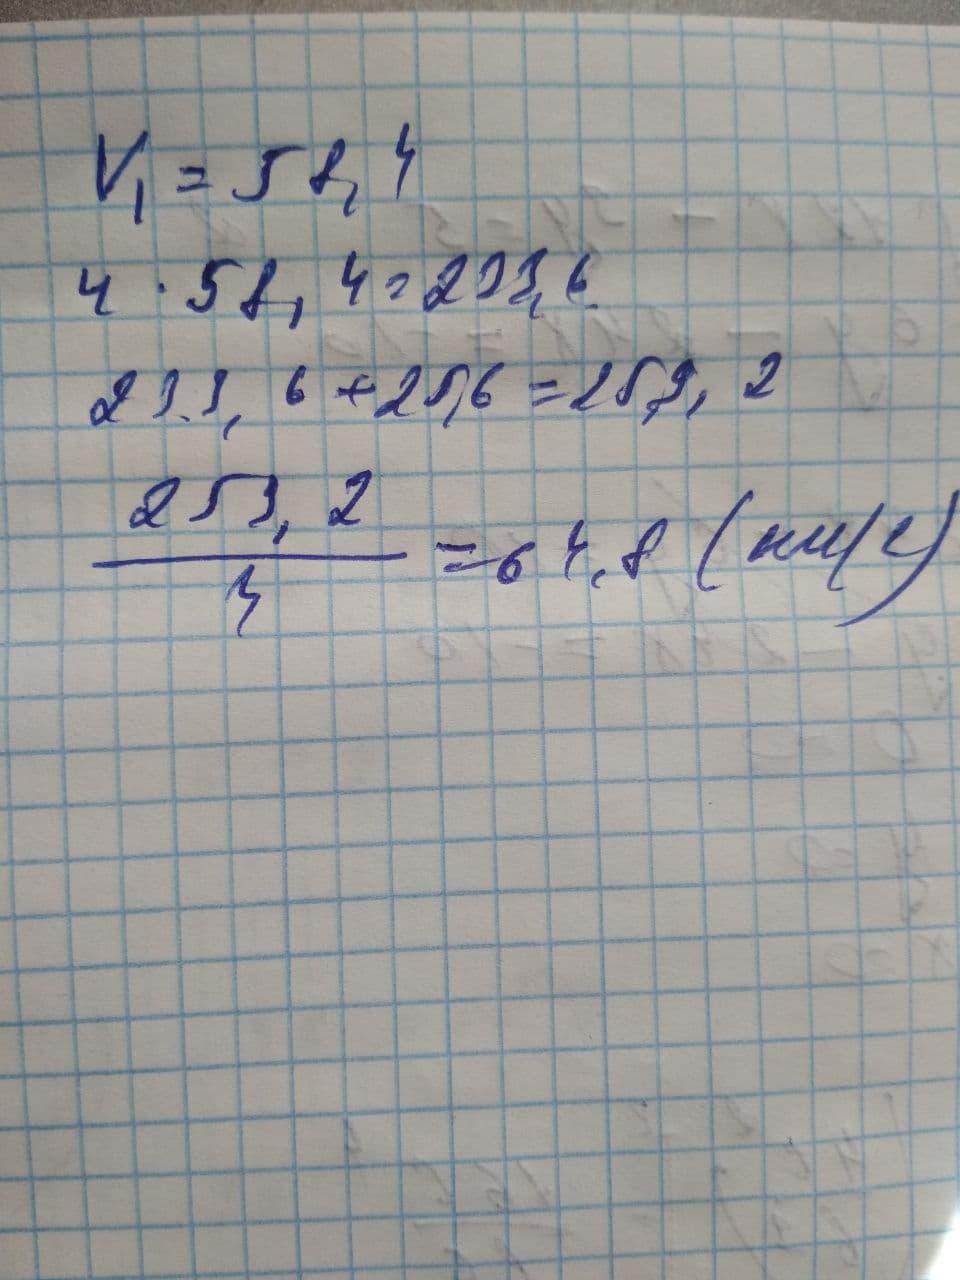 V₁ = 58,4
4 · 58,4 = 233,6
233,6 + 25,6 = 259,2
259,2
4
= 64,8 (км/ч)